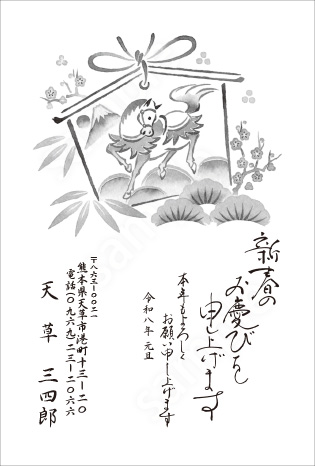 新春の
お慶びを
申し上げます
本年もよろしく
お願い申し上げます
令和八年 元旦
〒八六三―〇〇二一
熊本県天草市港町十三―二〇
電話(〇九六九)二三―二〇六六
天草 三四郎